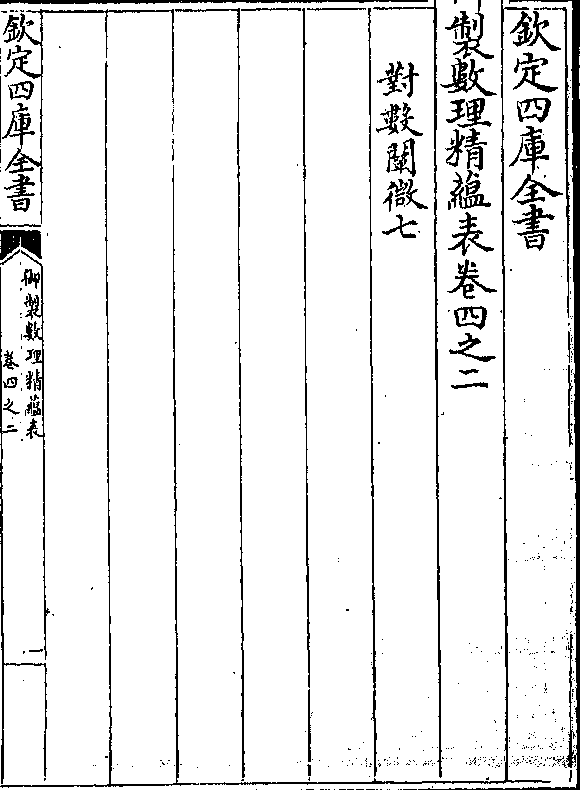 欽定四庫全書
御製數理精藴表卷四之二
對數闡微七
欽定四庫全書
御製數理精藴表
卷四之二
一